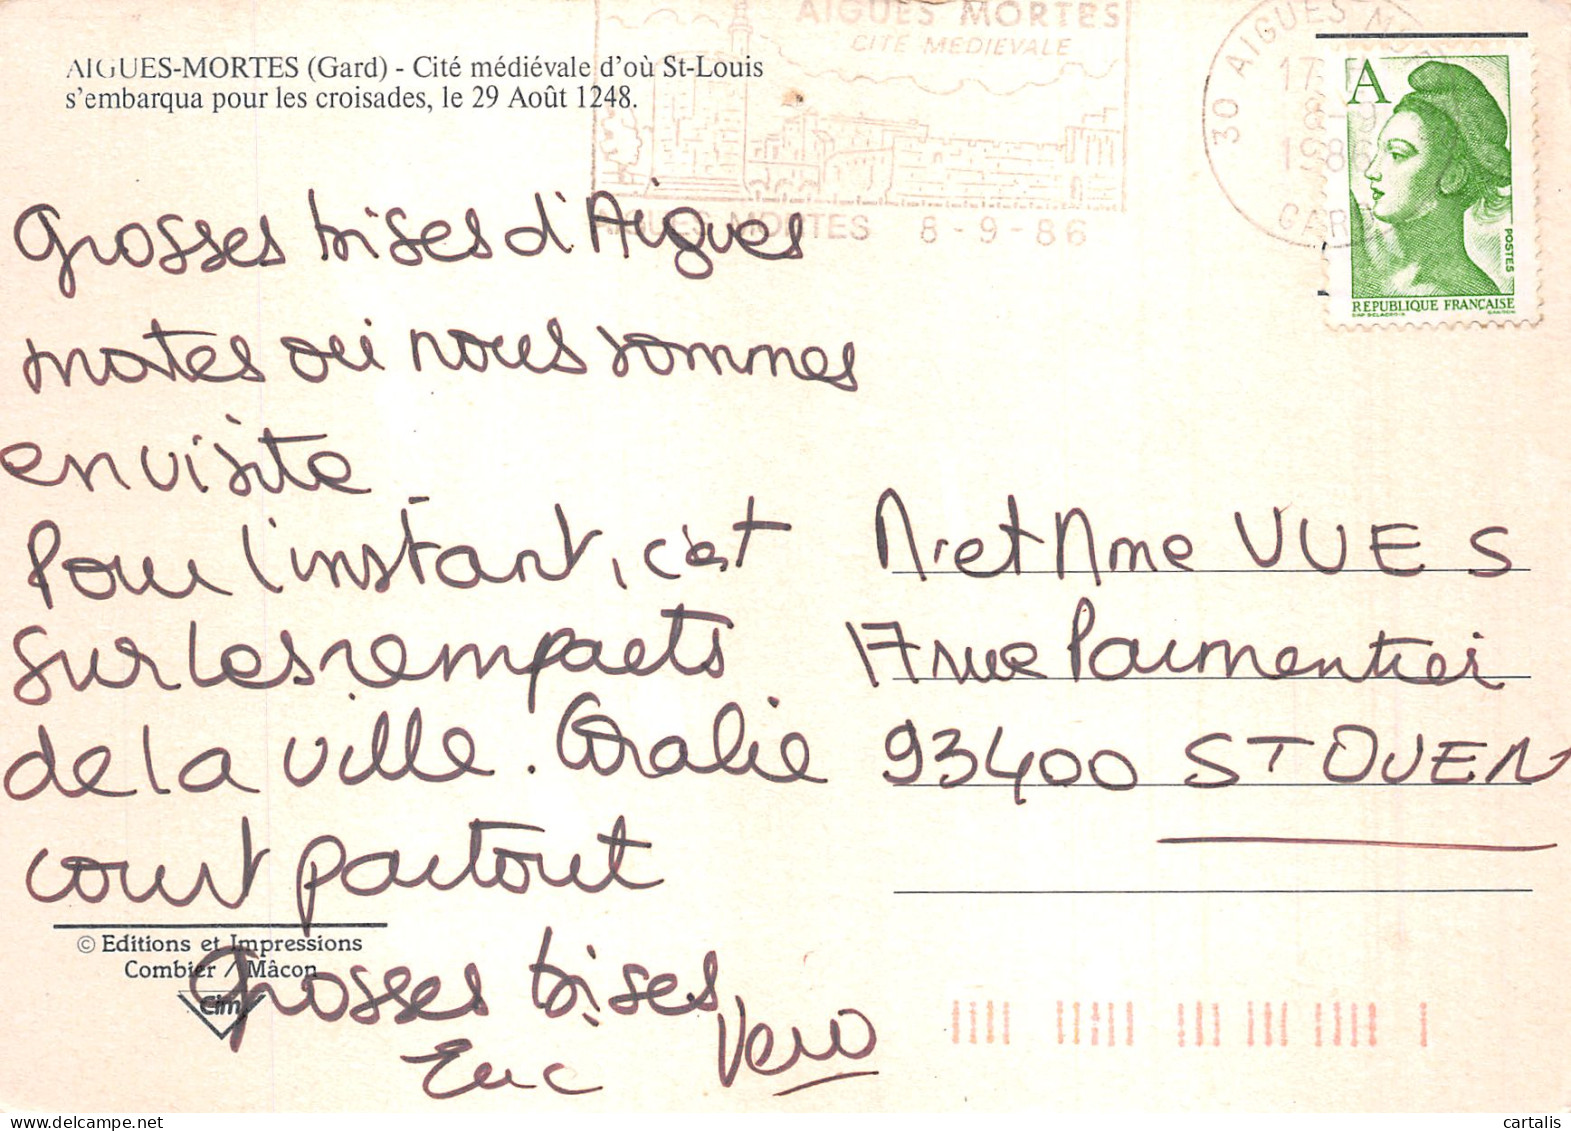 AIGUES-MORTES (Gard) - Cité médiévale d'où St-Louis
s'embarqua pour les croisades, le 29 Août 1248.
AIGUES MORTES
CITE MEDIEVALE
AIGUES-MORTES 8-9-86
30 AIGUES MORTES
17
8-9
1986
GARD
A
POSTES
REPUBLIQUE FRANÇAISE
Grosses bises d'Aigues
mortes où nous sommes
en visite
Pour l'instant, c'est
sur les remparts
de la ville. Coralie
court partout
Grosses bises
Eric Vero
Mr et Mme VUES
17 rue Parmentier
93400 ST OUEN
© Editions et Impressions
Combier / Mâcon
Cim
cartalis